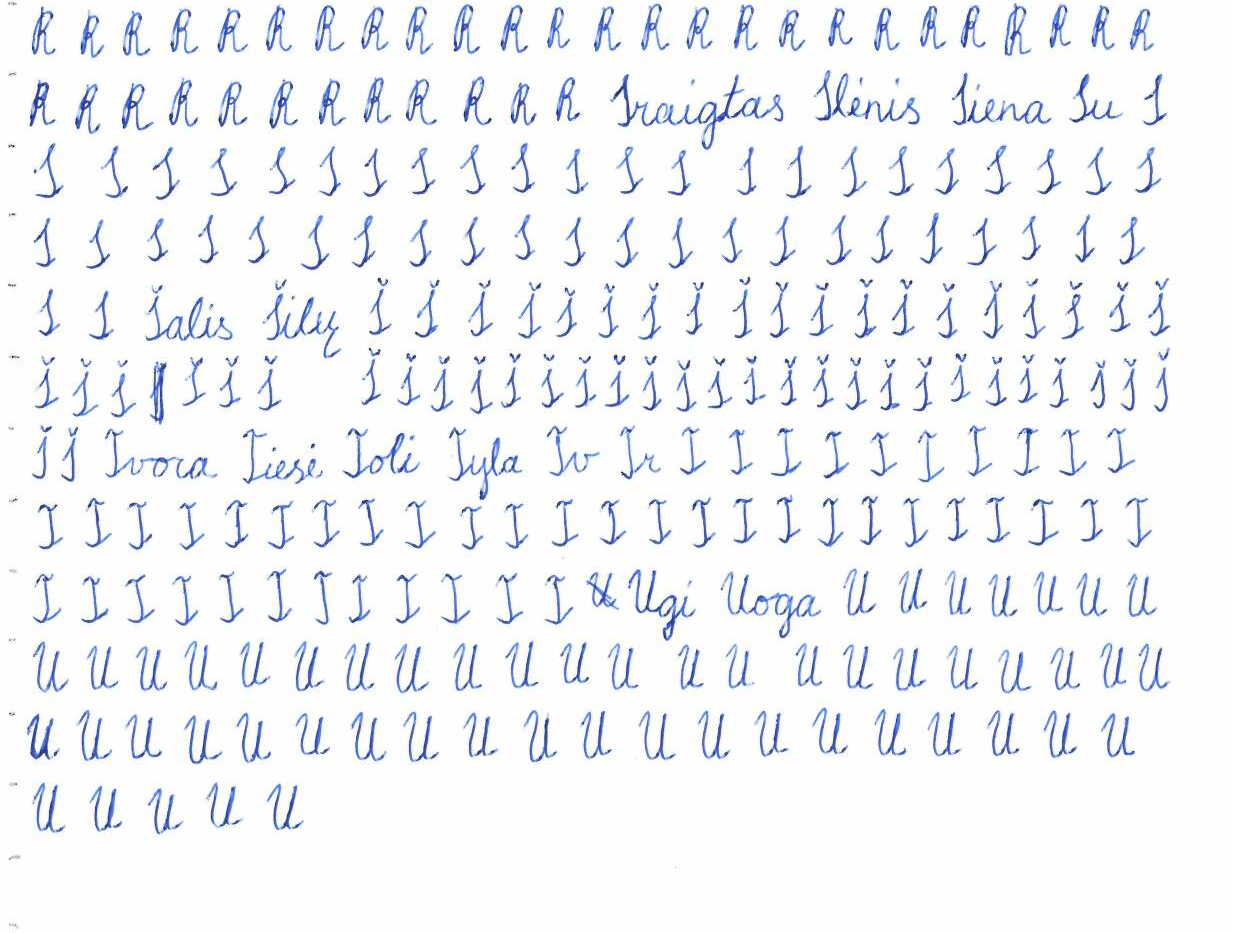 R R R R R R R R R R R R R R R R R R R R R R R R R
R R R R R R R R R R R R Sraigtas Slėnis Siena Su S
S S S S S S S S S S S S S S S S S S S S S S
S S S S S S S S S S S S S S S S S S S S S S
S S Šalis Šilų Š Š Š Š Š Š Š Š Š Š Š Š Š Š Š Š Š Š Š
Š Š Š Š Š Š Š Š Š Š Š Š Š Š Š Š Š Š Š Š Š Š Š Š Š Š Š Š Š Š
Š Š Tvora Tiesė Toli Tyla Tv Tr T T T T T T T T T T
T T T T T T T T T T T T T T T T T T T T T T T T T
T T T T T T T T T T T T Ugi Uoga U U U U U U U
U U U U U U U U U U U U U U U U U U U U U U
U U U U U U U U U U U U U U U U U U U U
U U U U U